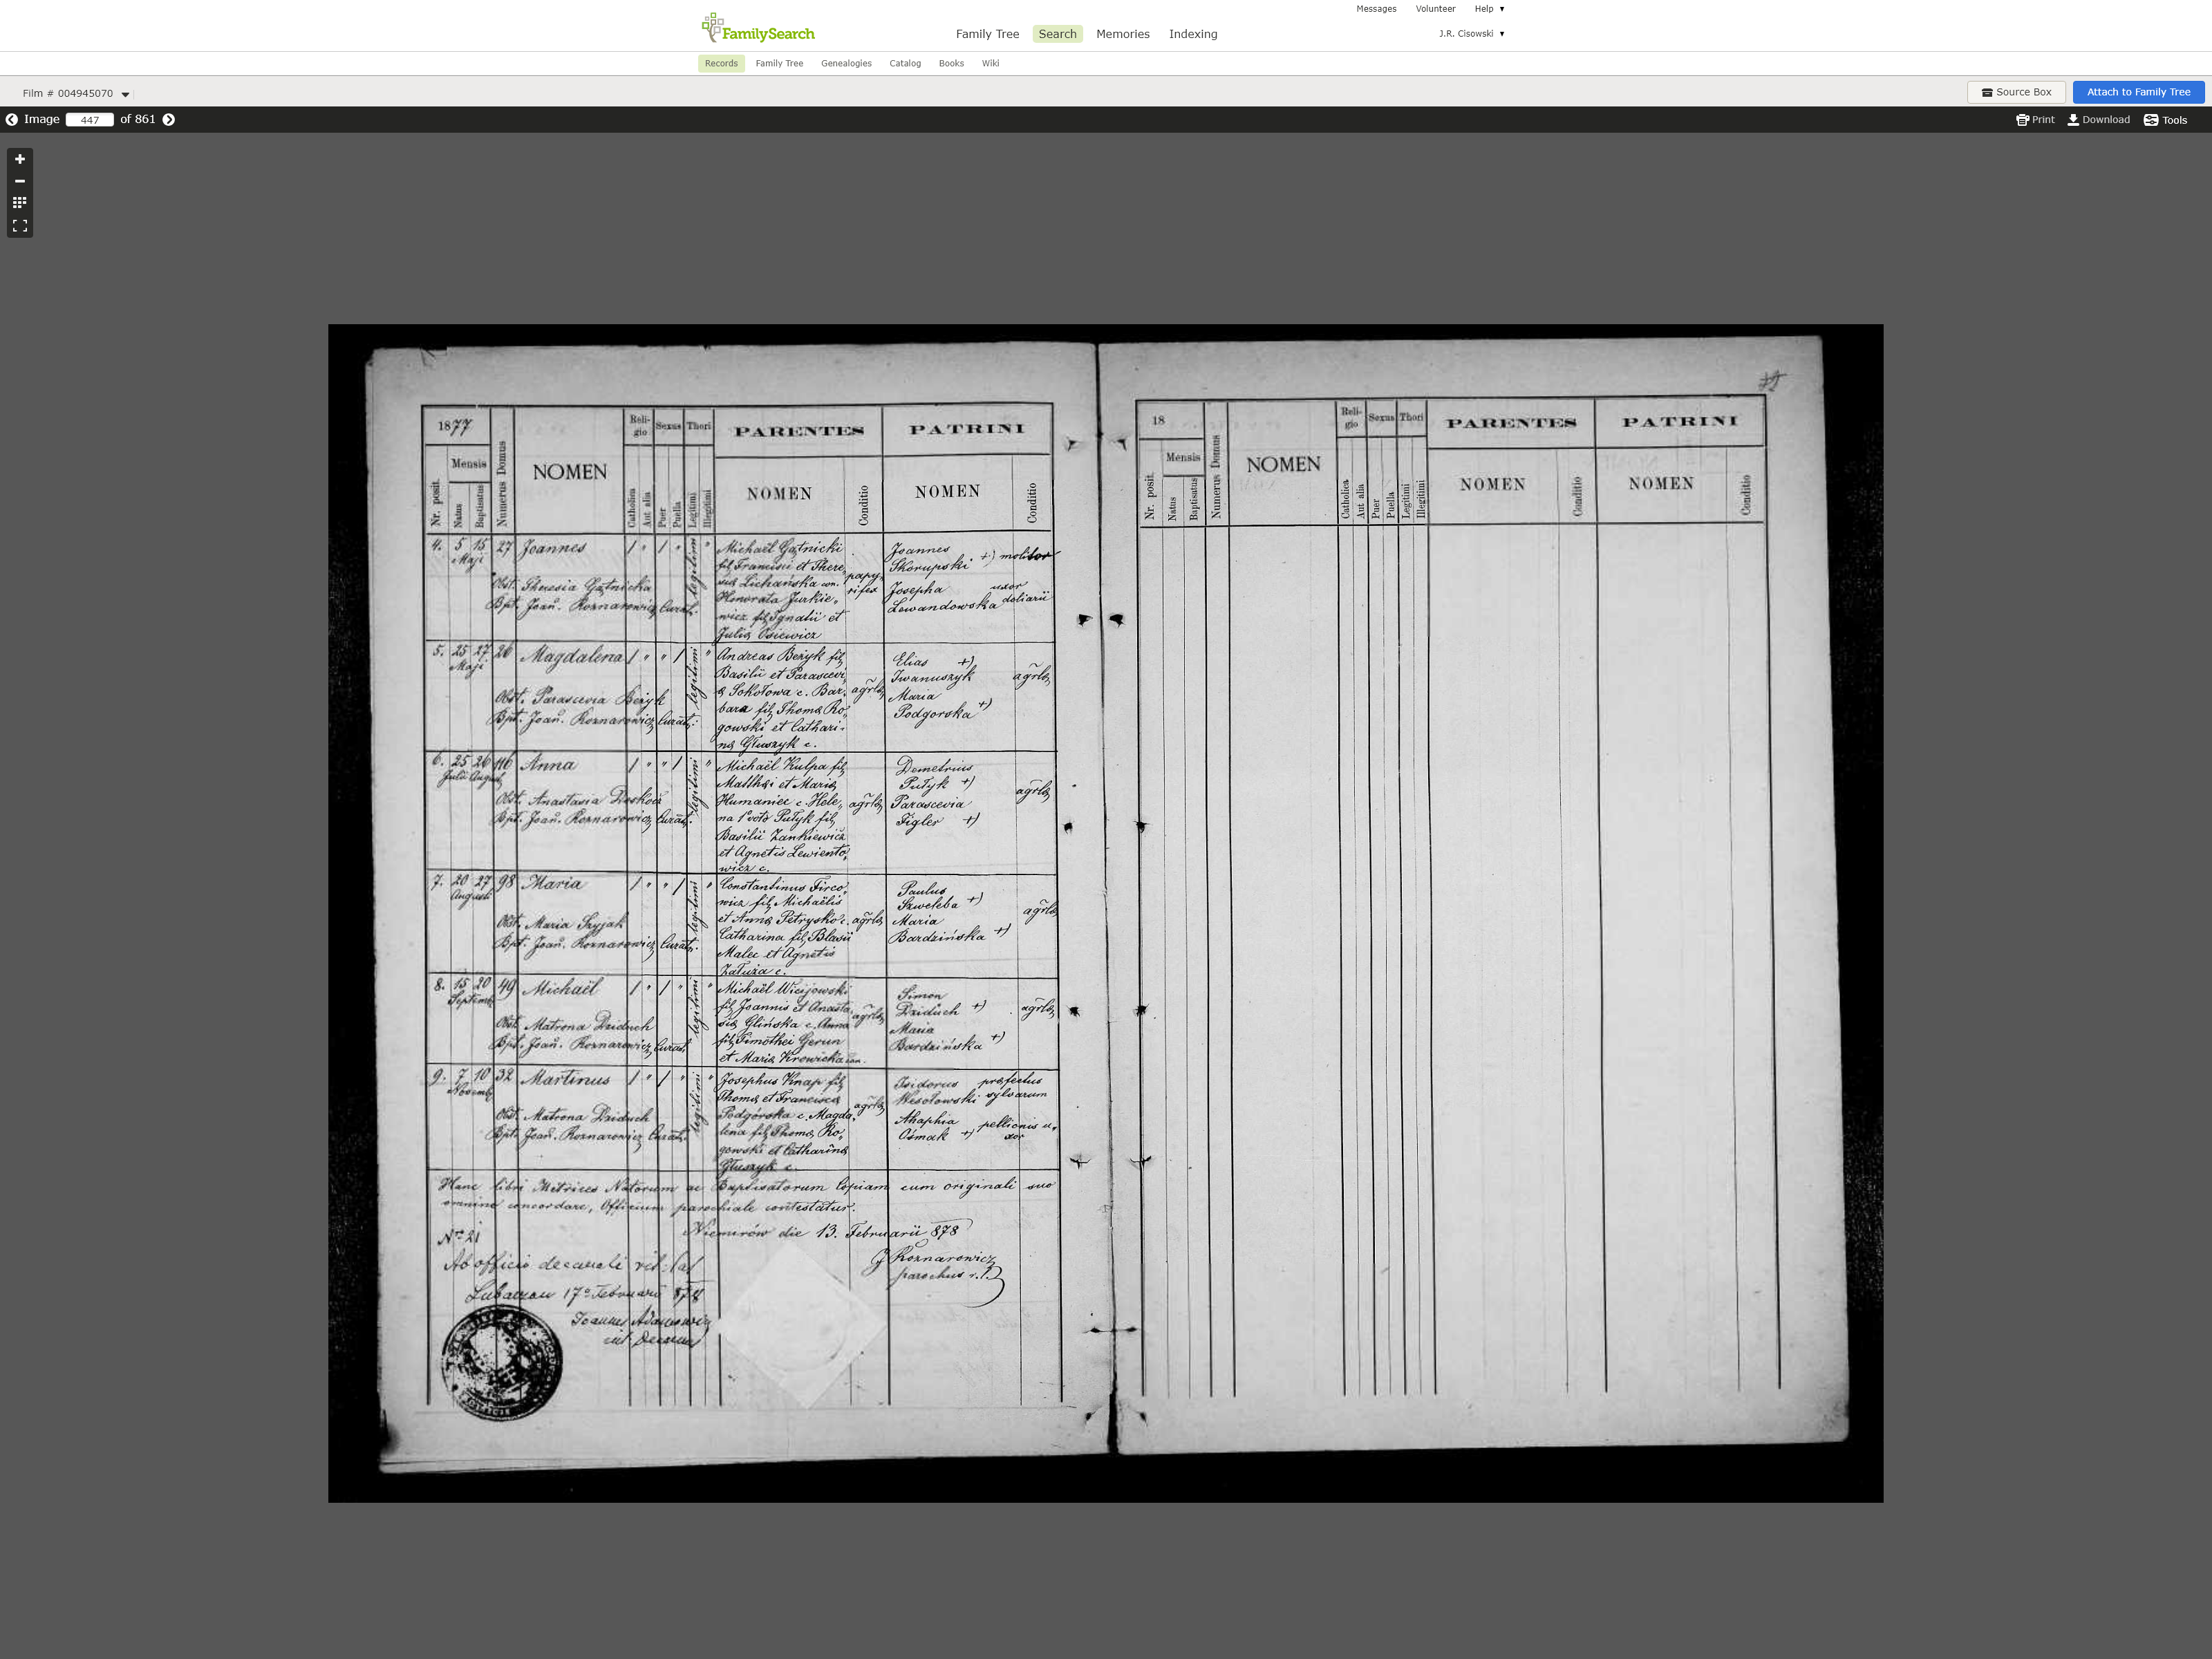 Messages Volunteer Help
FamilySearch
Family Tree Search Memories Indexing
J.R. Cisowski
Records Family Tree Genealogies Catalog Books Wiki
Film # 004945070
Source Box Attach to Family Tree
Image 447 of 861
Print Download Tools
1877
Mensis
Nr. posit.
Natus
Baptisatus
Numerus Domus
NOMEN
Reli-
gio
Sexus
Thori
Catholica
Aut alia
Puer
Puella
Legitimi
Illegitimi
PARENTES
NOMEN
Conditio
PATRINI
NOMEN
Conditio
4. 5 15 27 Joannes
Maji
Obst. Theresia Gątnicka
Bpt. Joań. Roznarowicz Curat.
legitimi
Michaël Gątnicki
fil. Francisci et There„
sia Lichańska con.
Honorata Jurkie„
wicz fil. Ignatii et
Julia Osiewicz
papy„
rifex
Joannes
Skorupski +) molitor
Josepha uxor
Lewandowska doliarii
5. 25 27 26 Magdalena
Maji
Obst. Parascevia Beżyk
Bpt. Joań. Roznarowicz Curat.
legitimi
Andreas Beżyk fil.
Basilii et Parascevi„
a Sokołowa c. Bar„
bara fil. Thoma Ro„
gowski et Cathari„
na Głuszyk c.
agrla
Elias +)
Iwanuszyk
Maria
Podgorska +)
agrla
6. 25 26 116 Anna
Julii August
Obst. Anastasia
Bpt. Joań. Roznarowicz Curat.
legitimi
Michaël Kulpa fil.
Matthai et Maria
Humaniec c. Hele„
na 1° voto Putyk fil.
Basilii Zankiewicz
et Agnetis Lewiento„
wicz c.
agrla
Demetrius
Putyk +)
Parascevia
Figler +)
agrla
7. 20 27 98 Maria
Augusti
Obst. Maria Szyjak
Bpt. Joań. Roznarowicz Curat.
legitimi
Constantinus Firco„
wicz fil. Michaëlis
et Anna Petrysko c.
Catharina fil. Blasii
Malec et Agnetis
Załuża c.
agrla
Paulus
Szweteba +)
Maria
Bardzińska +)
agrla
8. 15 20 49 Michaël
Septemb
Obst. Matrona Dziduch
Bpt. Joań. Roznarowicz Curat.
legitimi
Michaël Wicijowski
fil. Joannis et Anasta„
sia Glińska c. Anna
fil. Timothei Gerun
et Maria Krowicka con.
agrla
Simon
Dziduch +)
Maria
Bardzińska +)
agrla
9. 7 10 32 Martinus
Novemb
Obst. Matrona Dziduch
Bpt. Joań. Roznarowicz Curat.
legitimi
Josephus Knap fil.
Thoma et Francisca
Podgórska c. Magda„
lena fil. Thoma Ro„
gowski et Catharina
Głuszyk c.
agrla
Isidorus prafectus
Wesołowski sylvarum
Ahaphia pellionis u„
Ośmak +) xor
Hanc libri Metrices Natorum ac Baptisatorum Copiam cum originali suo
omnino concordare, Officium parochiale contestatur.
Niemirów die 13. Februarii 878
Nro 21
J Roznarowicz
parochus r. l.
Ab officio decanali rit. lat
Lubaczow 17° Februarii 878
Joannes Adamowicz
Decanus
18
Mensis
Nr. posit.
Natus
Baptisatus
Numerus Domus
NOMEN
Reli-
gio
Sexus
Thori
Catholica
Aut alia
Puer
Puella
Legitimi
Illegitimi
PARENTES
NOMEN
Conditio
PATRINI
NOMEN
Conditio